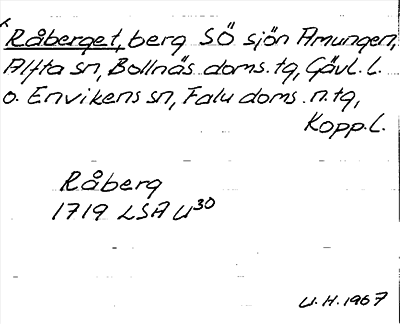 Råberget, berg SÖ sjön Amungen,
Alfta sn, Bollnäs doms. tg, Gävl. l.
o. Envikens sn, Falu doms. n. tg,
Kopp. l.
Råberg
1719 LSA U30
U.H. 1967